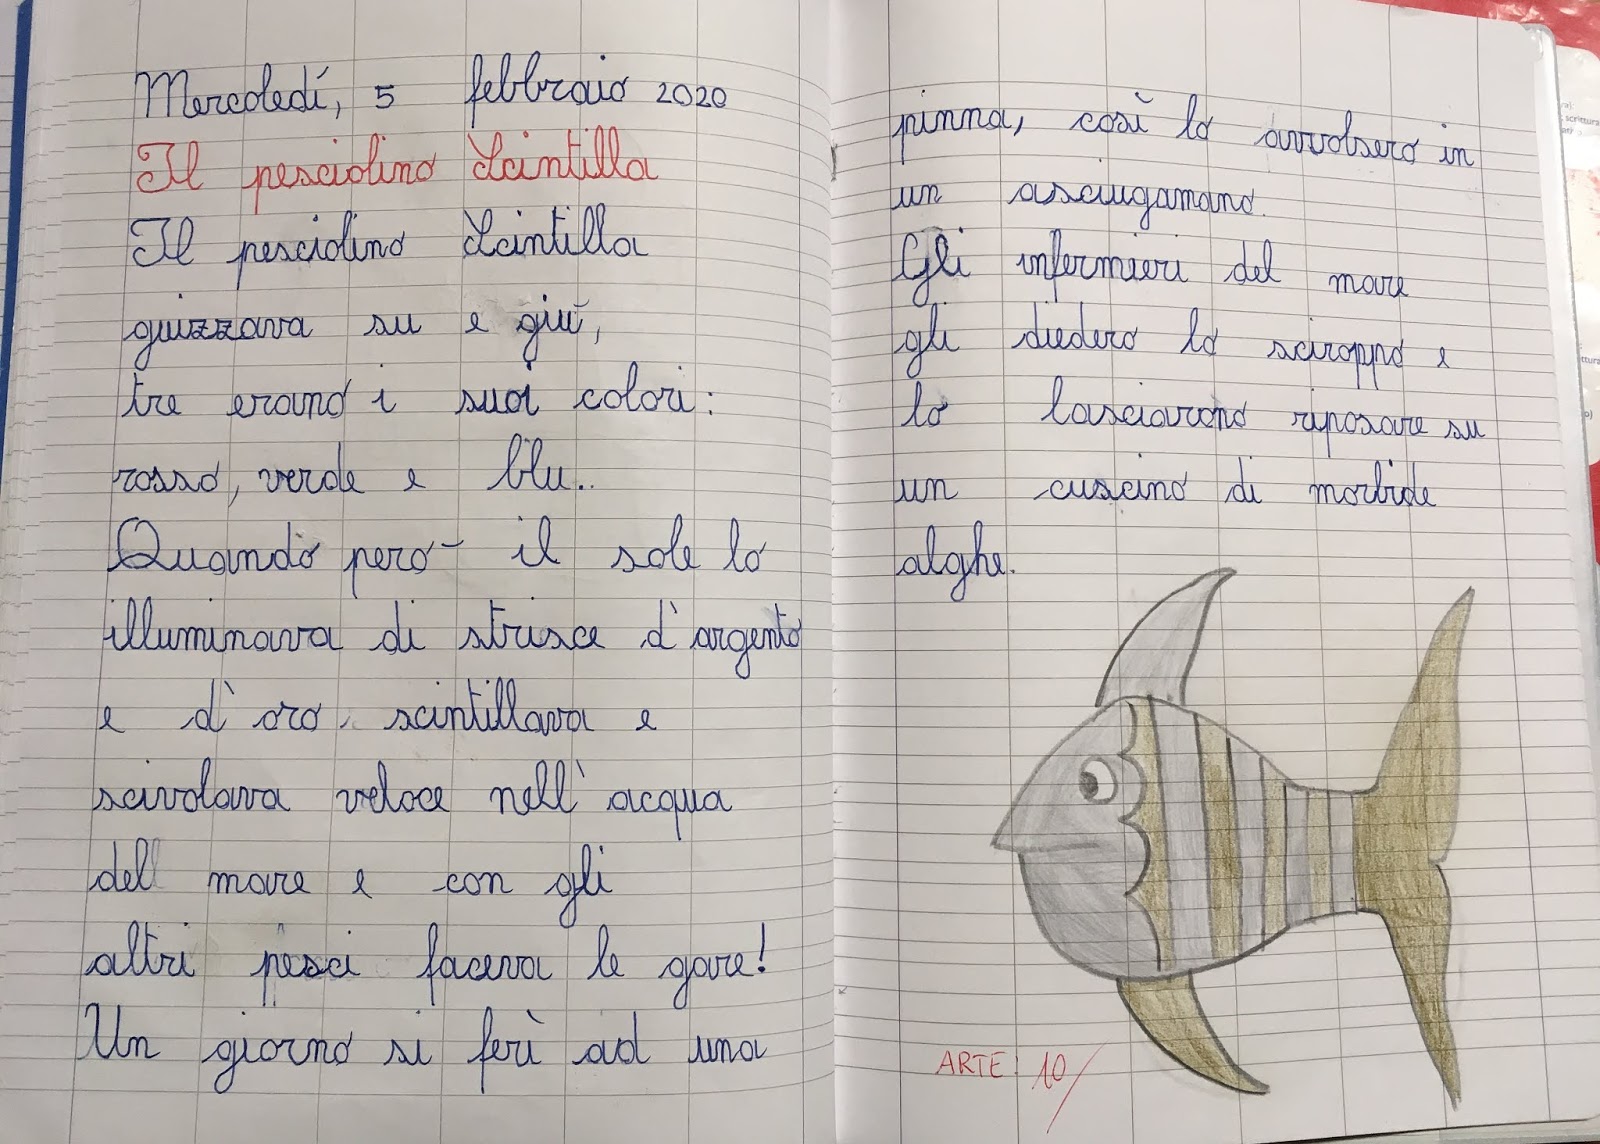 Mercoledí, 5 febbraio 2020
Il pesciolino Scintilla
Il pesciolino Scintilla
guizzava su e giù,
tre erano i suoi colori:
rosso, verde e blu..
Quando però il sole lo
illuminava di strisce d'argento
e d'oro, scintillava e
scivolava veloce nell'acqua
del mare e con gli
altri pesci faceva le gare!
Un giorno si ferì ad una
pinna, così lo avvolsero in
un asciugamano.
Gli infermieri del mare
gli diedero lo sciroppo e
lo lasciarono riposare su
un cuscino di morbide
alghe.
ARTE: 10/